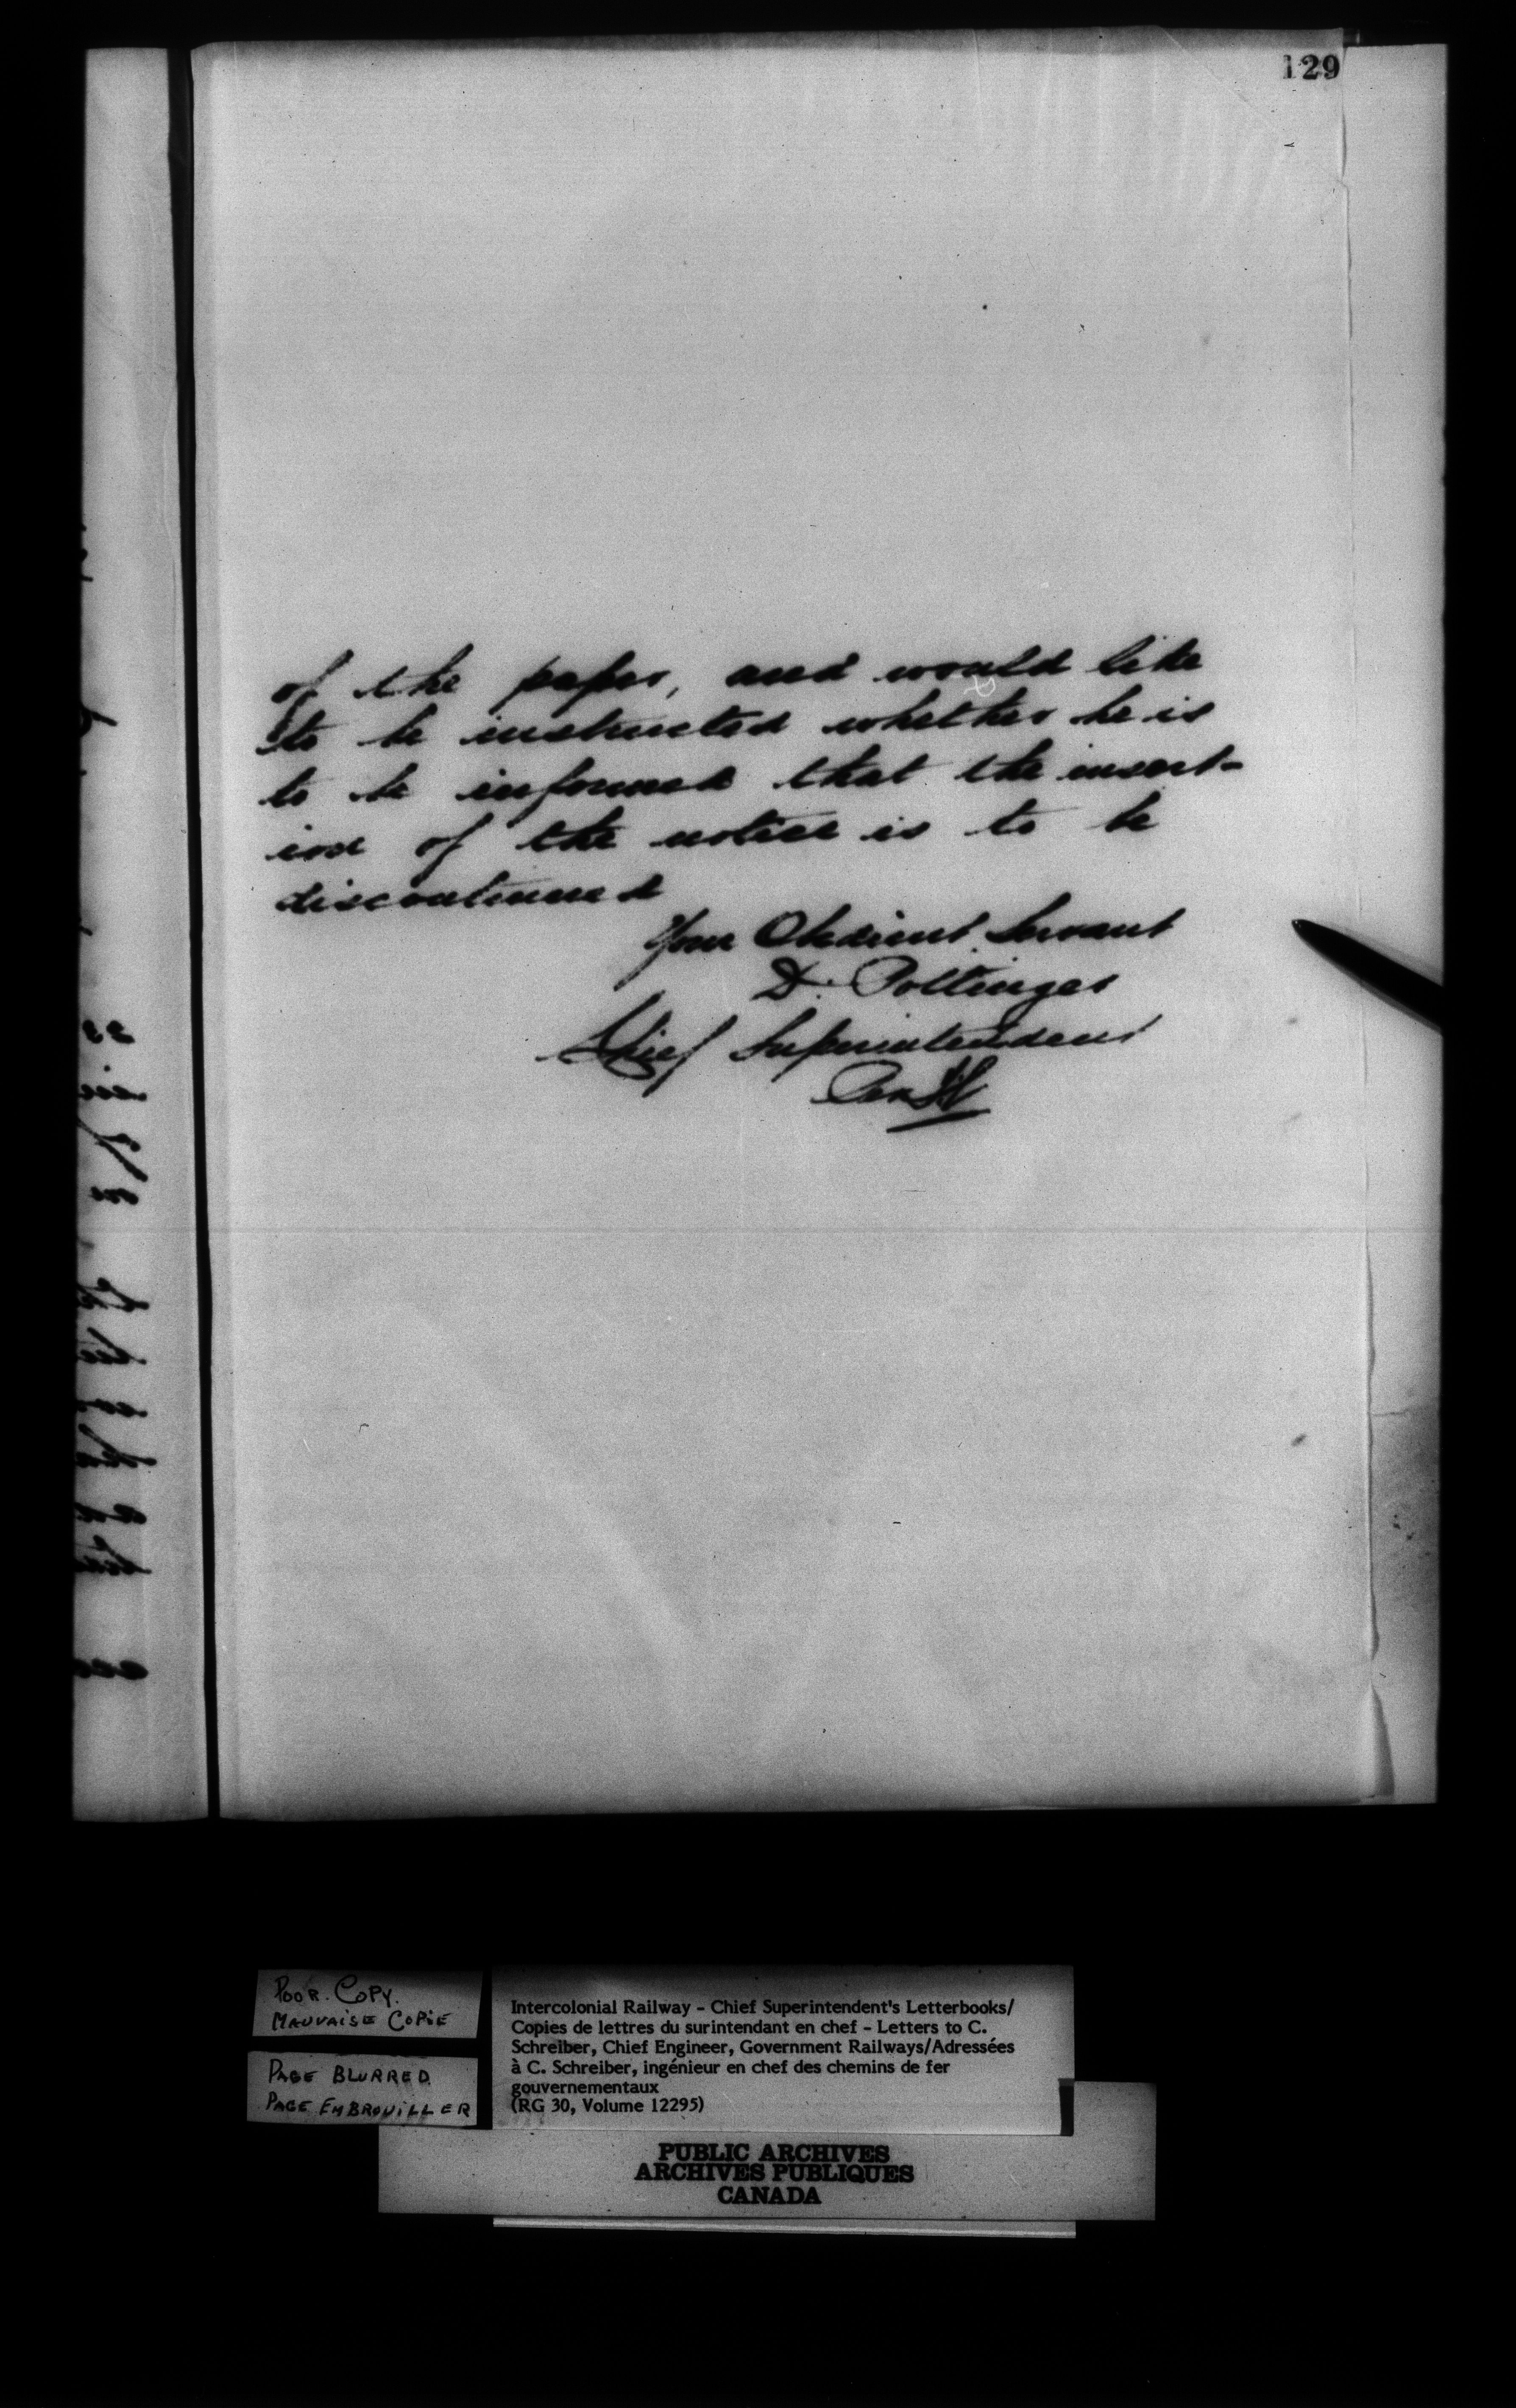 129
of the paper, and would like
to be instructed whether he is
to be informed that the insert-
ion of the notice is to be
discontinued
Your Obedient Servant
D. Pottinger
Chief Superintendent
Per
POOR COPY.
MAUVAISE COPIE
PAGE BLURRED.
PAGE EMBROUILLER
Intercolonial Railway – Chief Superintendent's Letterbooks/
Copies de lettres du surintendant en chef – Letters to C.
Schreiber, Chief Engineer, Government Railways/Adressées
à C. Schreiber, ingénieur en chef des chemins de fer
gouvernementaux
(RG 30, Volume 12295)
PUBLIC ARCHIVES
ARCHIVES PUBLIQUES
CANADA